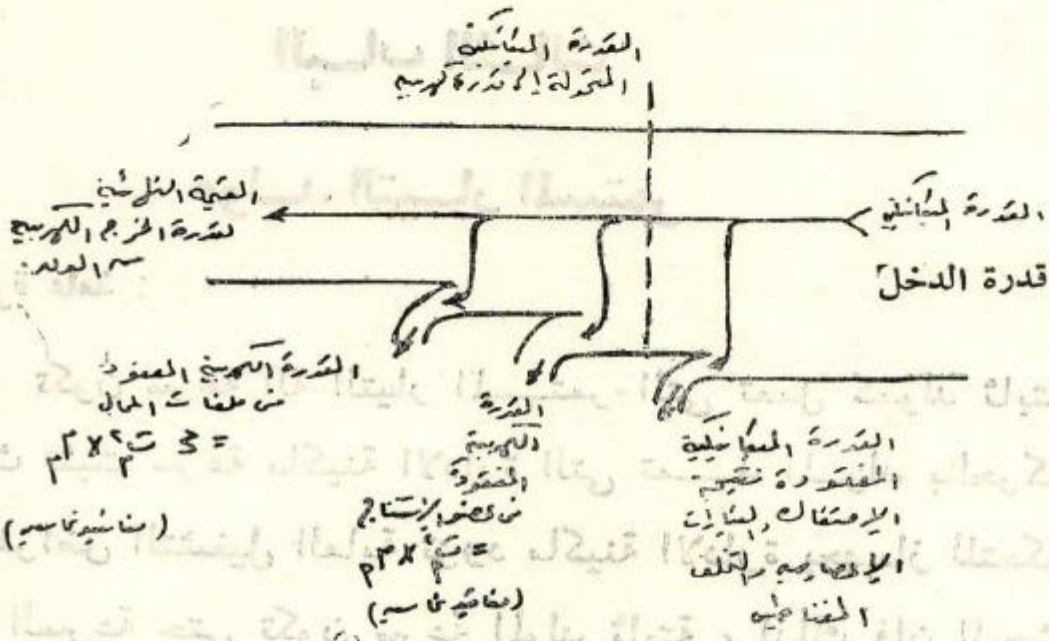 القدرة الميكانيكية
المتحولة إلى قدرة كهربية
القدرة الميكانيكية
قدرة الدخل
القيمة النهائية
لقدرة الخرج الكهربية
من المولد
القدرة الكهربية المفقودة
في ملفات المجال
= ت²م × مم
(مفاقيد نحاسية)
القدرة
الكهربية
المفقودة
في عضو الاستنتاج
(مفاقيد نحاسية)
القدرة الميكانيكية
المفقودة نتيجة
الاحتكاك والتيارات
الإعصارية والتخلف
المغناطيسي